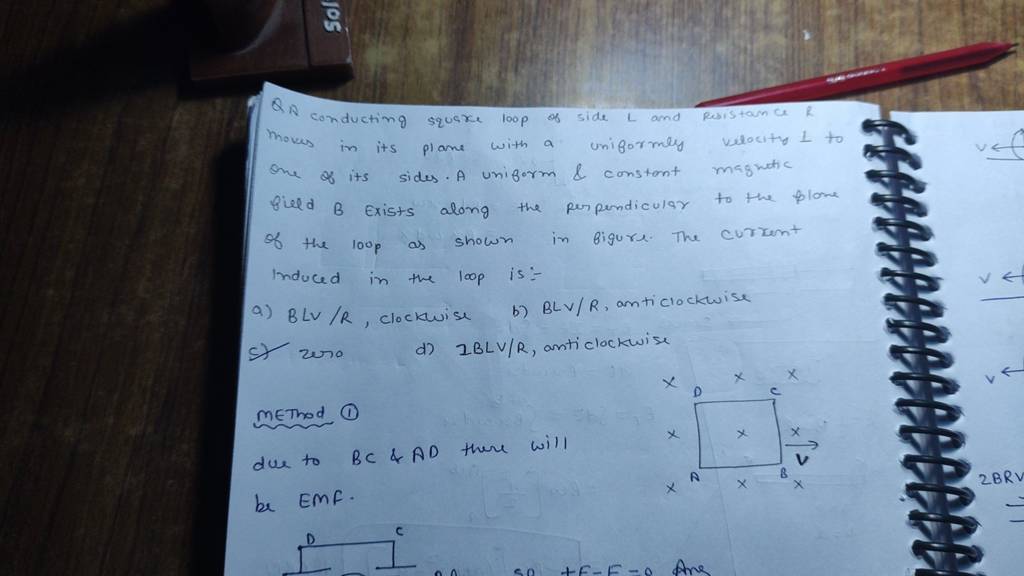 Q A conducting square loop of side L and Resistance R
moves in its plane with a uniformly velocity ⊥ to
one of its sides. A uniform & constant magnetic
field B Exists along the perpendicular to the plane
of the loop as shown in figure. The current
Induced in the loop is:-
a) BLV/R, clockwise b) BLV/R, anticlockwise
c) zero d) 2BLV/R, anticlockwise
METhod ①
due to BC & AD there will
be EMF.
D C
so +E-E=0 Ans
x x x
D C
x x x
V
A B
x x x
V
V
V
2BRV